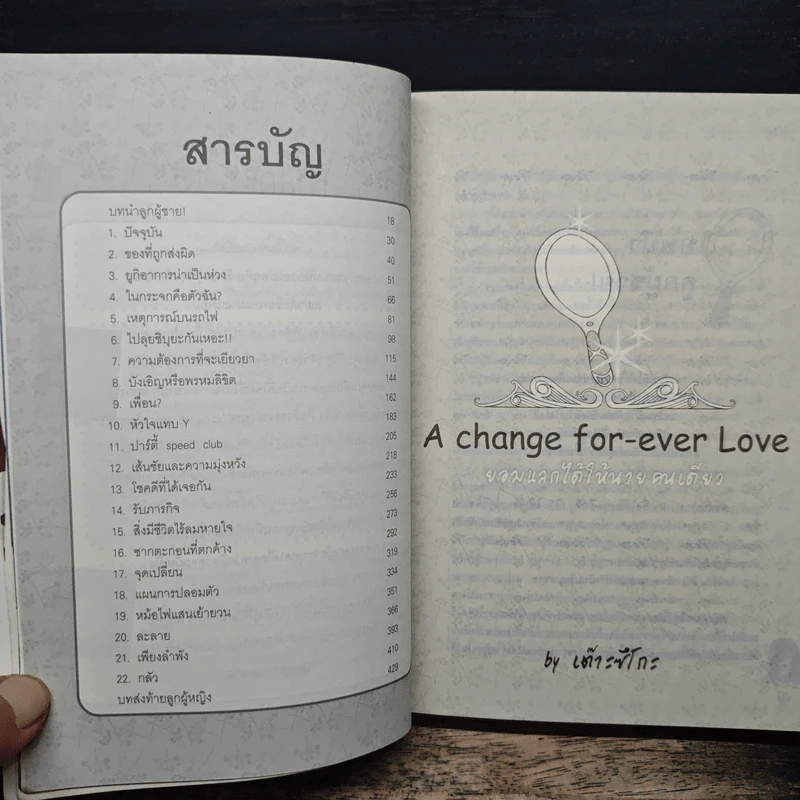 สารบัญ
บทนำลูกผู้ชาย! 18
1. ปัจจุบัน 30
2. ของที่ถูกส่งผิด 40
3. ยูกิอาการน่าเป็นห่วง 51
4. ในกระจกคือตัวฉัน? 66
5. เหตุการณ์บนรถไฟ 81
6. ไปลุยชิบุยะกันเหอะ!! 98
7. ความต้องการที่จะเยียวยา 115
8. บังเอิญหรือพรหมลิขิต 144
9. เพื่อน? 162
10. หัวใจแทบ Y 183
11. ปาร์ตี้ speed club 205
12. เส้นชัยและความมุ่งหวัง 218
13. โชคดีที่ได้เจอกัน 233
14. รับภารกิจ 256
15. สิ่งมีชีวิตไร้ลมหายใจ 273
16. ซากตะกอนที่ตกค้าง 292
17. จุดเปลี่ยน 319
18. แผนการปลอมตัว 334
19. หม้อไฟแสนเย้ายวน 351
20. ละลาย 366
21. เพียงลำพัง 393
22. กลัว 410
บทส่งท้ายลูกผู้หญิง 429
A change for-ever Love
ยอมแลกได้ให้นายคนเดียว
by เต๊าะซึโกะ